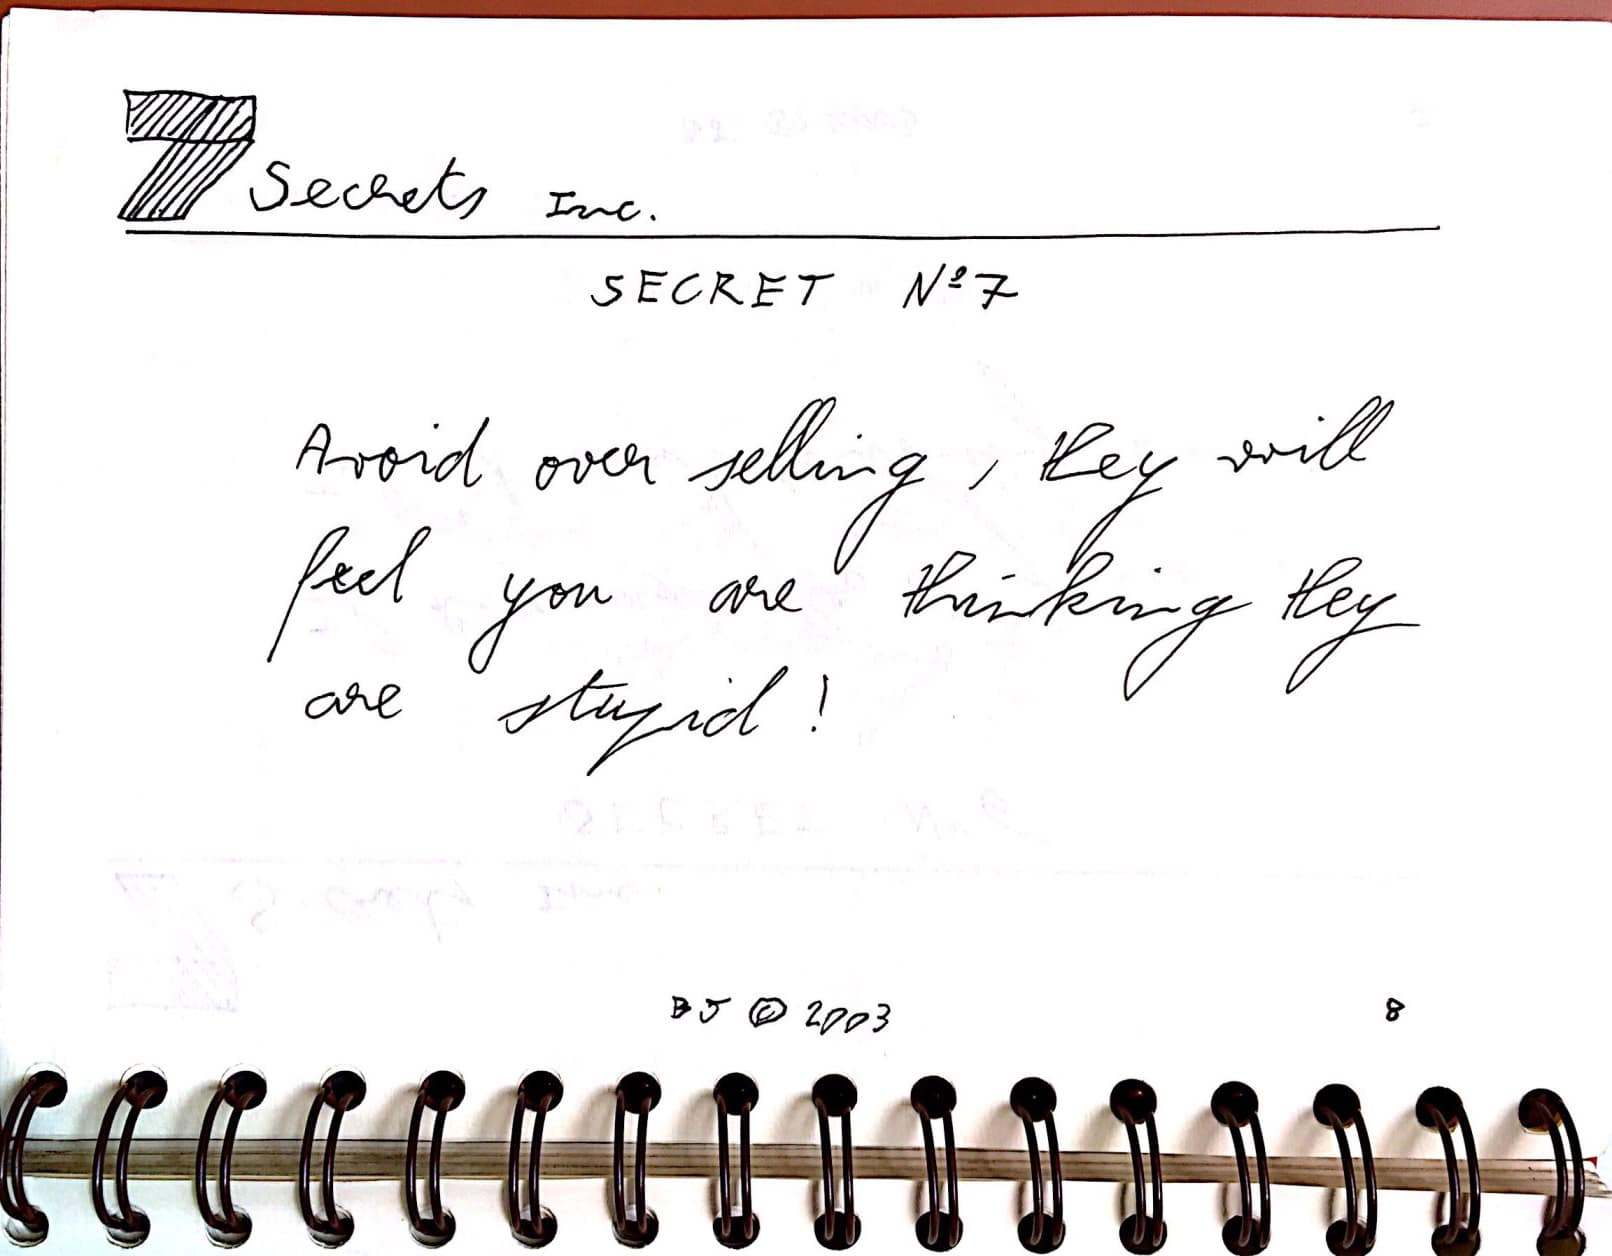 7 Secrets Inc.
SECRET Nº7
Avoid over selling, they will
feel you are thinking they
are stupid!
BJ © 2003
8